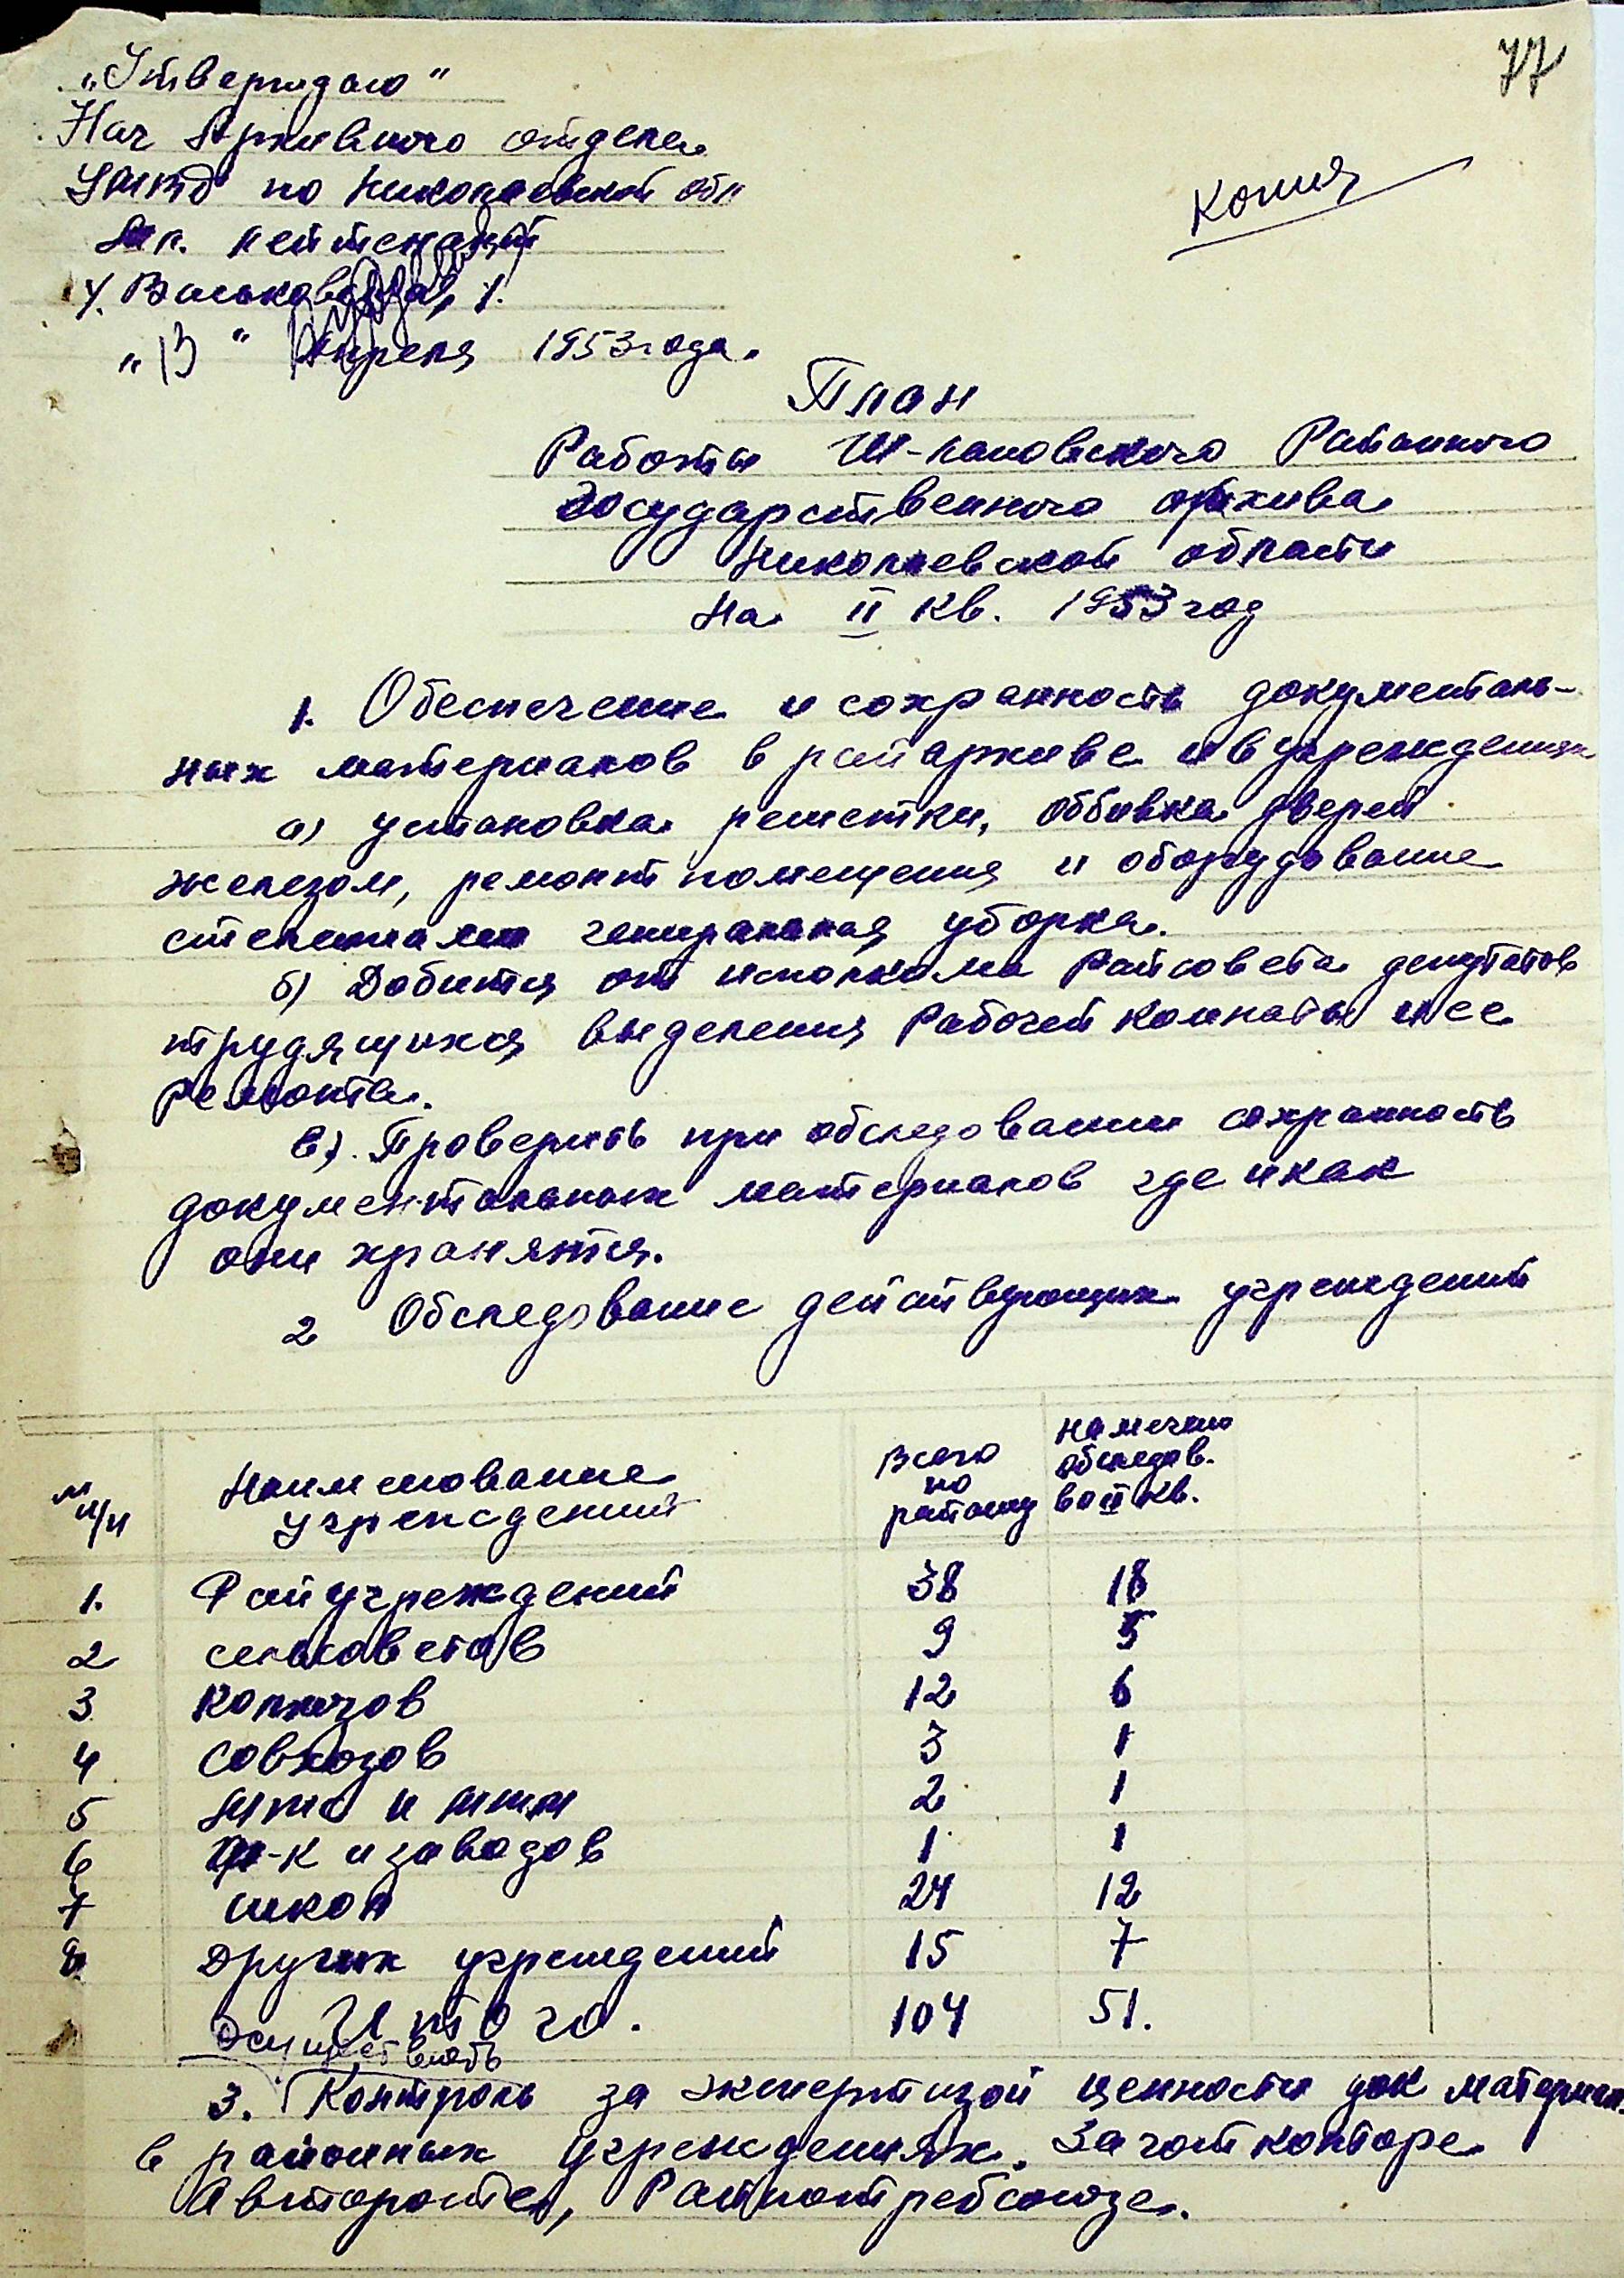 77
„Утверждаю"
Нач Архивного отдела
УМВД по Николаевской обл
Мл. лейтенант
/. Васькова /.
„13" Апреля 1953 года.
Копия
План
Работы Ш-лановского Районного
Государственного архива
Николаевской области
На II кв. 1953 год
1. Обеспечение и сохранность документаль-
ных материалов в райархиве и в учреждениях
а) установка решетки, оббивка дверей
железом, ремонт помещения и оборудование
стелажами генеральная уборка.
б) Добится от исполкома Райсовета депутатов
трудящихся выделения Рабочей комнаты и ее
ремонта.
в). Проверить при обследовании сохранность
документальных материалов где и как
они хранятся.
2 Обследование действующих учреждений
№ п/п Наименование учреждений Всего по району намечено обследов. во II кв.
1. Райучреждений 38 18
2 сельсоветов 9 5
3 колхозов 12 6
4 совхозов 3 1
5 МТС и 2 1
6 ф-к и заводов 1 1
7 школ 24 12
8 Других учреждений 15 7
Итого. 104 51.
Осуществлять
3. Контроль за экспертизой ценности док материал.
в районных учреждениях. Заготконторе
Автороте, Райпотребсоюзе.